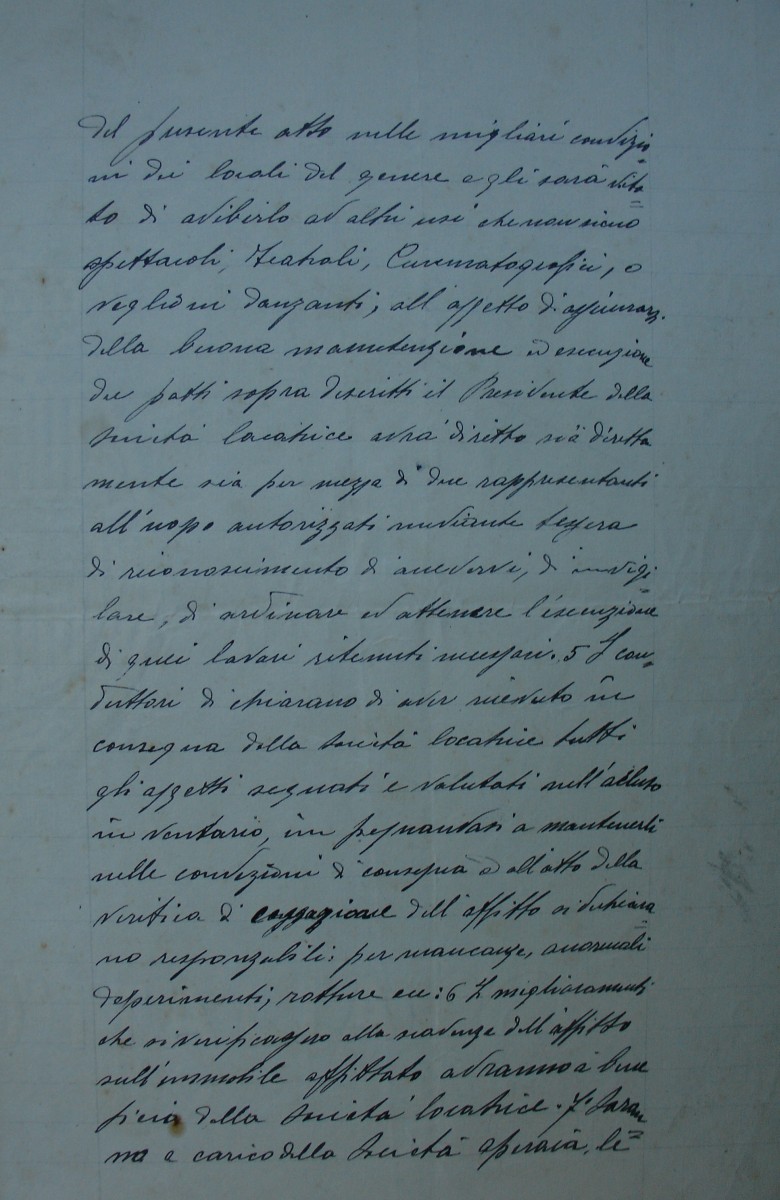 del presente atto nelle migliari condizio=
ni dei locali del genere e gli sarà vita=
to di adibirlo ad altri usi che non siano
spettacoli, Teatrali, Cinematografici, o
veglioni danzanti, all'oggetto di assicurarsi
della buona manutenzione ed esecuzione
dei patti sopra descritti il Presidente della
Società locatrice avrà diretto sia diretta
mente sia per mezzo di due rappresentanti
all'uopo autorizzati mediante tessera
di riconoscimento di accedervi, di invigi=
lare, di ordinare ed attenere l'esecuzione
di quei lavori ritenuti necessari. 5 I con=
duttori di chiarano di aver ricevuto in
consegna dalla Società locatrice tutti
gli oggetti segnati e valutati nell'accluso
in ventario, im pegnandosi a mantenerli
nelle condizioni di consegna e all'atto della
verifica di cessazione dell'affitto si dichiara=
no responzabili: per mancanze, anormali
deperimenti, rotture ecc: 6 I miglioramenti
che si verificassero alla scadenza dell'affitto
sull'immobile affittato adranno a bene
ficio della Società locatrice. 7° Saran=
no a carico della Società operaia, le=